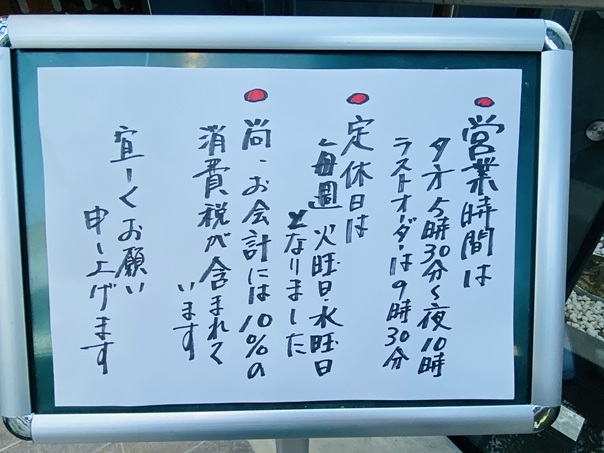 営業時間は
夕方5時30分〜夜10時
ラストオーダーは9時30分
定休日は
毎週火曜日・水曜日
となりました
尚、お会計には10%の
消費税が含まれて
います
宜しくお願い
申し上げます